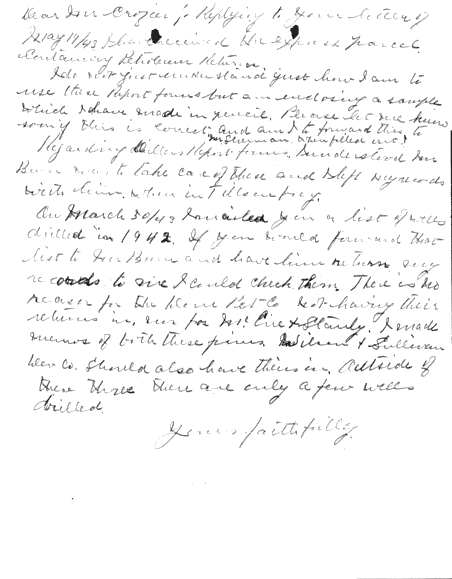 Dear Mr Crozier;- Replying to your letter of
May 19/43 I have received the express parcel
containing Petroleum Returns.
I do not just understand just how I am to
use these Report forms but am enclosing a sample
which I have made in pencil. Please let me know
this is correct and am I to forward this to
Mr Sherman when filled out?
Regarding Drillers Report forms I understood Mr
was to take care of these and left my records
with him when in Tillsonburg.
On March 30/43 I mailed you a list of wells
drilled in 1942. If you would forward that
list to Mr and have him return my
records to me I could check them. There is no
reason for the Dome Pet. Co not having their
returns in, nor for Mc & I made
memos of both these Wilson & Sullivan
Dev Co. should also have theirs in. Outside of
these three there are only a few wells
drilled.
Yours faithfully.